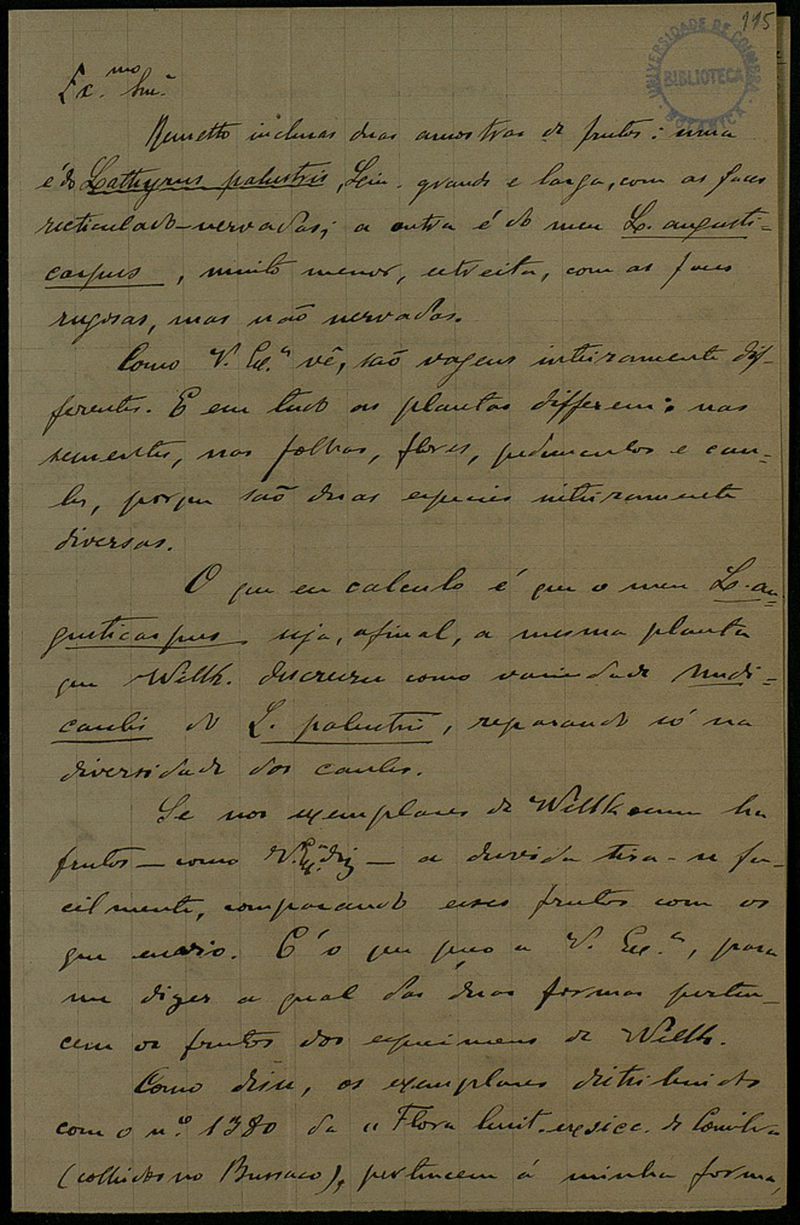 115
UNIVERSIDADE DE COIMBRA
BIBLIOTECA
BOTANICA
Ex.mo Snr.
Remetto inclusas duas amostras de frutos: uma
é do Lathyrus palustris, Lin. grande e larga, com as faces
recticulado-nervadas; a outra é do meu L. angusti-
carpus, muito menor, estreita, com as faces
rugosas, mas não nervadas.
Como V. Ex.a vê, são vagens inteiramente dif-
ferentes. E em tudo as plantas differem: nas
sementes, nas folhas, flores, pedunculos e cau-
les, porque são duas especies inteiramente
diversas.
O que eu calculo é que o meu L. an-
gusticarpus seja, afinal, a mesma planta
que Willk. descreveu como variedade nudi-
caulis do L. palustris, reparando só na
diversidade dos caules.
Se nos exemplares de Willkomm ha
frutos — como V. Ex.a diz — a duvida tira-se fa-
cilmente, comparando esses frutos com os
que envio. É o que peço a V. Ex.a, para
me dizer a qual das duas formas perten-
cem os frutos dos especimens de Willk.
Como disse, os exemplares distribuidos
com o n.º 1380 da "Flora lusit. exsicc. de Coimbra
(colhidos no Bussaco), pertencem á minha forma,